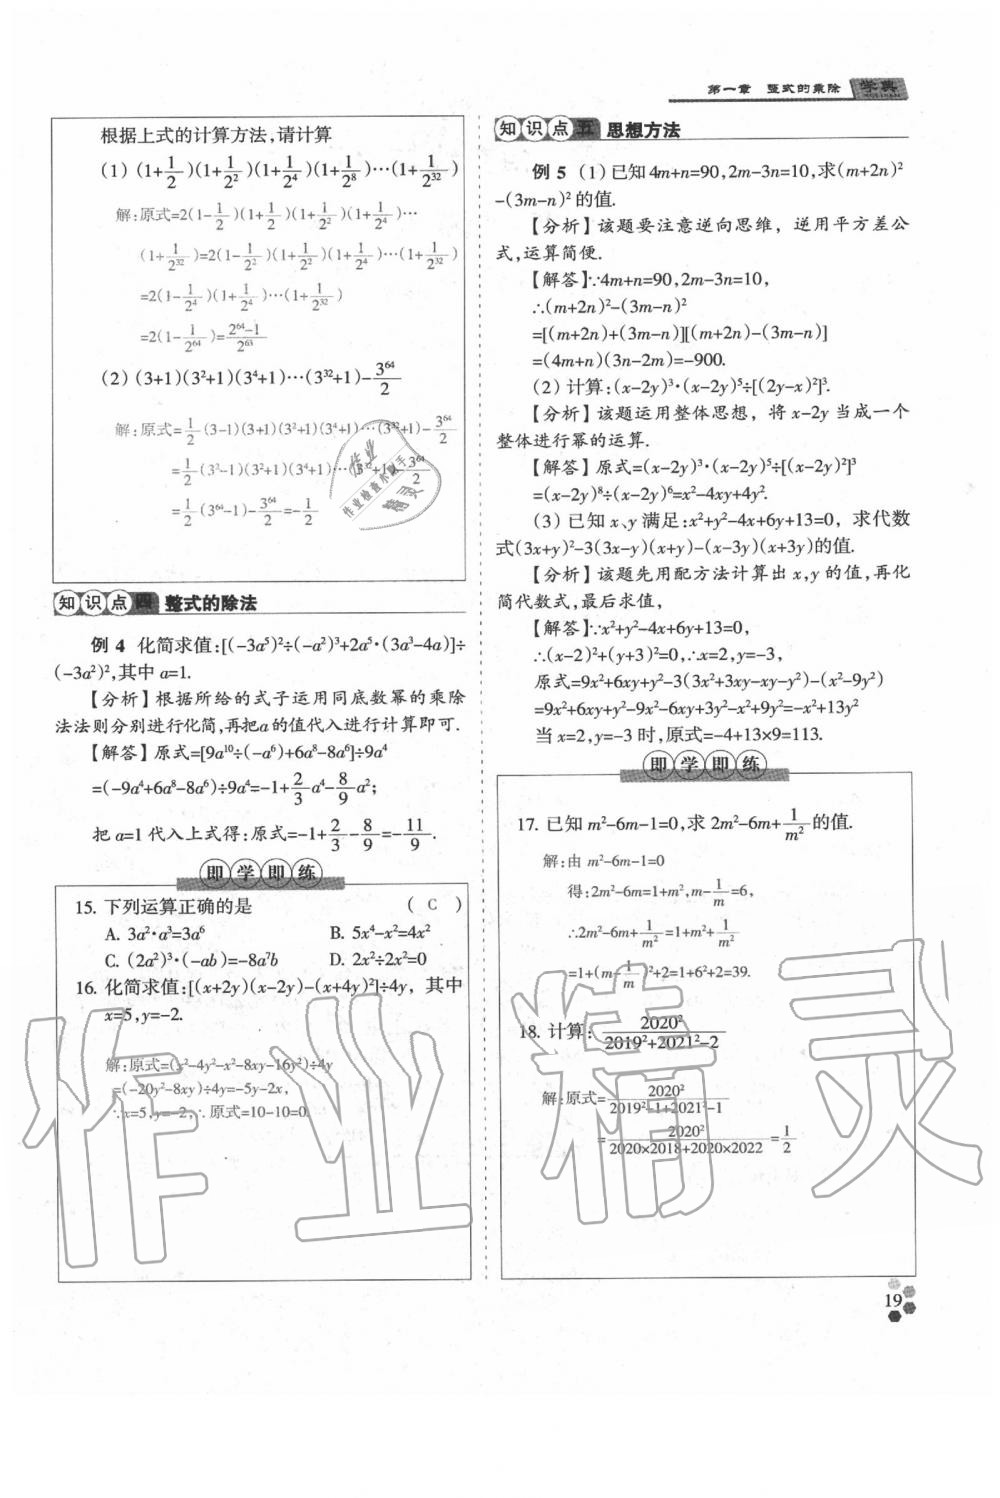 第一章 整式的乘除 学典
根据上式的计算方法,请计算
(1) (1+1/2)(1+1/2²)(1+1/2⁴)(1+1/2⁸)···(1+1/2³²)
解:原式=2(1-1/2)(1+1/2)(1+1/2²)(1+1/2⁴)···
(1+1/2³²)=2(1-1/2²)(1+1/2²)(1+1/2⁴)···(1+1/2³²)
=2(1-1/2⁴)(1+1/2⁴)···(1+1/2³²)
=2(1-1/2⁶⁴)=2⁶⁴-1/2⁶³
(2) (3+1)(3²+1)(3⁴+1)···(3³²+1)-3⁶⁴/2
解:原式=1/2(3-1)(3+1)(3²+1)(3⁴+1)···(3³²+1)-3⁶⁴/2
=1/2(3²-1)(3²+1)(3⁴+1)···(3³²+1)-3⁶⁴/2
=1/2(3⁶⁴-1)-3⁶⁴/2=-1/2
知识点四 整式的除法
例 4 化简求值:[(-3a⁵)²÷(-a²)³+2a⁵·(3a³-4a)]÷
(-3a²)²,其中 a=1.
【分析】根据所给的式子运用同底数幂的乘除
法法则分别进行化简,再把a的值代入进行计算即可.
【解答】原式=[9a¹⁰÷(-a⁶)+6a⁸-8a⁶]÷9a⁴
=(-9a⁴+6a⁸-8a⁶)÷9a⁴=-1+2/3a⁴-8/9a²;
把 a=1 代入上式得:原式=-1+2/3-8/9=-11/9.
即学即练
15. 下列运算正确的是 ( C )
A. 3a²·a³=3a⁶ B. 5x⁴-x²=4x²
C. (2a²)³·(-ab)=-8a⁷b D. 2x²÷2x²=0
16. 化简求值:[(x+2y)(x-2y)-(x+4y)²]÷4y, 其中
x=5,y=-2.
解:原式=(x²-4y²-x²-8xy-16y²)÷4y
=(-20y²-8xy)÷4y=-5y-2x,
∵x=5,y=-2,∴原式=10-10=0.
知识点五 思想方法
例 5 (1)已知4m+n=90,2m-3n=10,求(m+2n)²
-(3m-n)²的值.
【分析】该题要注意逆向思维, 逆用平方差公
式,运算简便.
【解答】∵4m+n=90,2m-3n=10,
∴(m+2n)²-(3m-n)²
=[(m+2n)+(3m-n)][(m+2n)-(3m-n)]
=(4m+n)(3n-2m)=-900.
(2) 计算:(x-2y)³·(x-2y)⁵÷[(2y-x)²]³.
【分析】该题运用整体思想, 将 x-2y 当成一个
整体进行幂的运算.
【解答】原式=(x-2y)³·(x-2y)⁵÷[(x-2y)²]³
=(x-2y)⁸÷(x-2y)⁶=x²-4xy+4y².
(3) 已知 x、y 满足:x²+y²-4x+6y+13=0, 求代数
式(3x+y)²-3(3x-y)(x+y)-(x-3y)(x+3y)的值.
【分析】该题先用配方法计算出 x,y 的值,再化
简代数式,最后求值,
【解答】∵x²+y²-4x+6y+13=0,
∴(x-2)²+(y+3)²=0,∴x=2,y=-3,
原式=9x²+6xy+y²-3(3x²+3xy-xy-y²)-(x²-9y²)
=9x²+6xy+y²-9x²-6xy+3y²-x²+9y²=-x²+13y²
当 x=2,y=-3 时,原式=-4+13×9=113.
即学即练
17. 已知 m²-6m-1=0,求 2m²-6m+1/m²的值.
解:由 m²-6m-1=0
得:2m²-6m=1+m²,m-1/m=6,
∴2m²-6m+1/m²=1+m²+1/m²
=1+(m-1/m)²+2=1+6²+2=39.
18. 计算: 2020²/2019²+2021²-2
解:原式=2020²/2019²-1+2021²-1
=2020²/2020×2018+2020×2022=1/2
19
作业
作业检查小助手
精灵
作业精灵